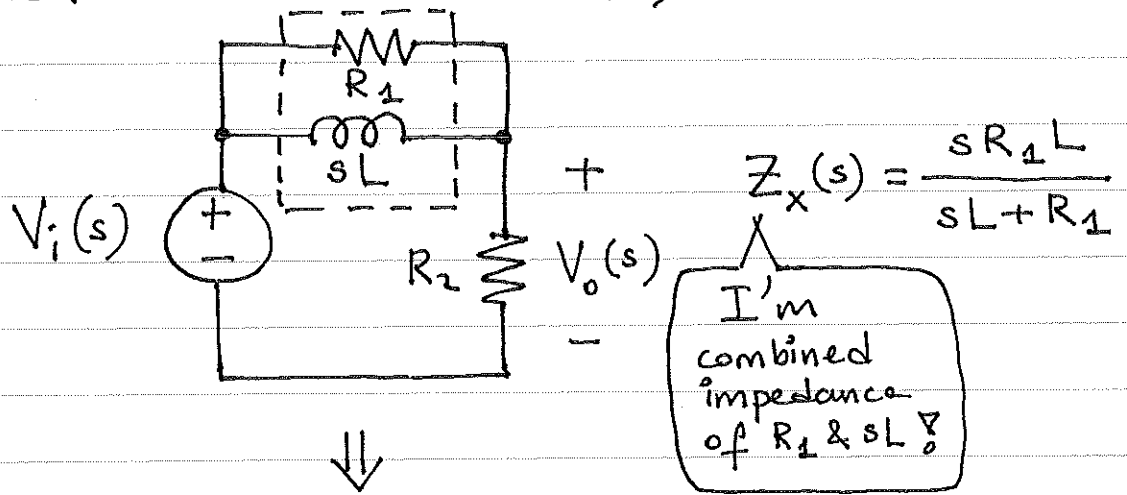 R₁
sL
Vᵢ(s)
+
−
R₂
+
Vₒ(s)
−
Zₓ(s) = sR₁L / (sL + R₁)
I'm
combined
impedance
of R₁ & sL !
⇓